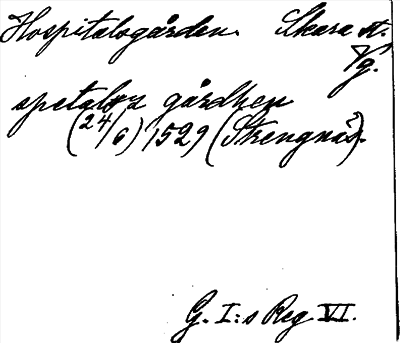 Hospitalsgården. Skara st.
Vg.
spetalsz gårdhen
(24/6) 1529 (Strengnäs).
G. I:s Reg VI.